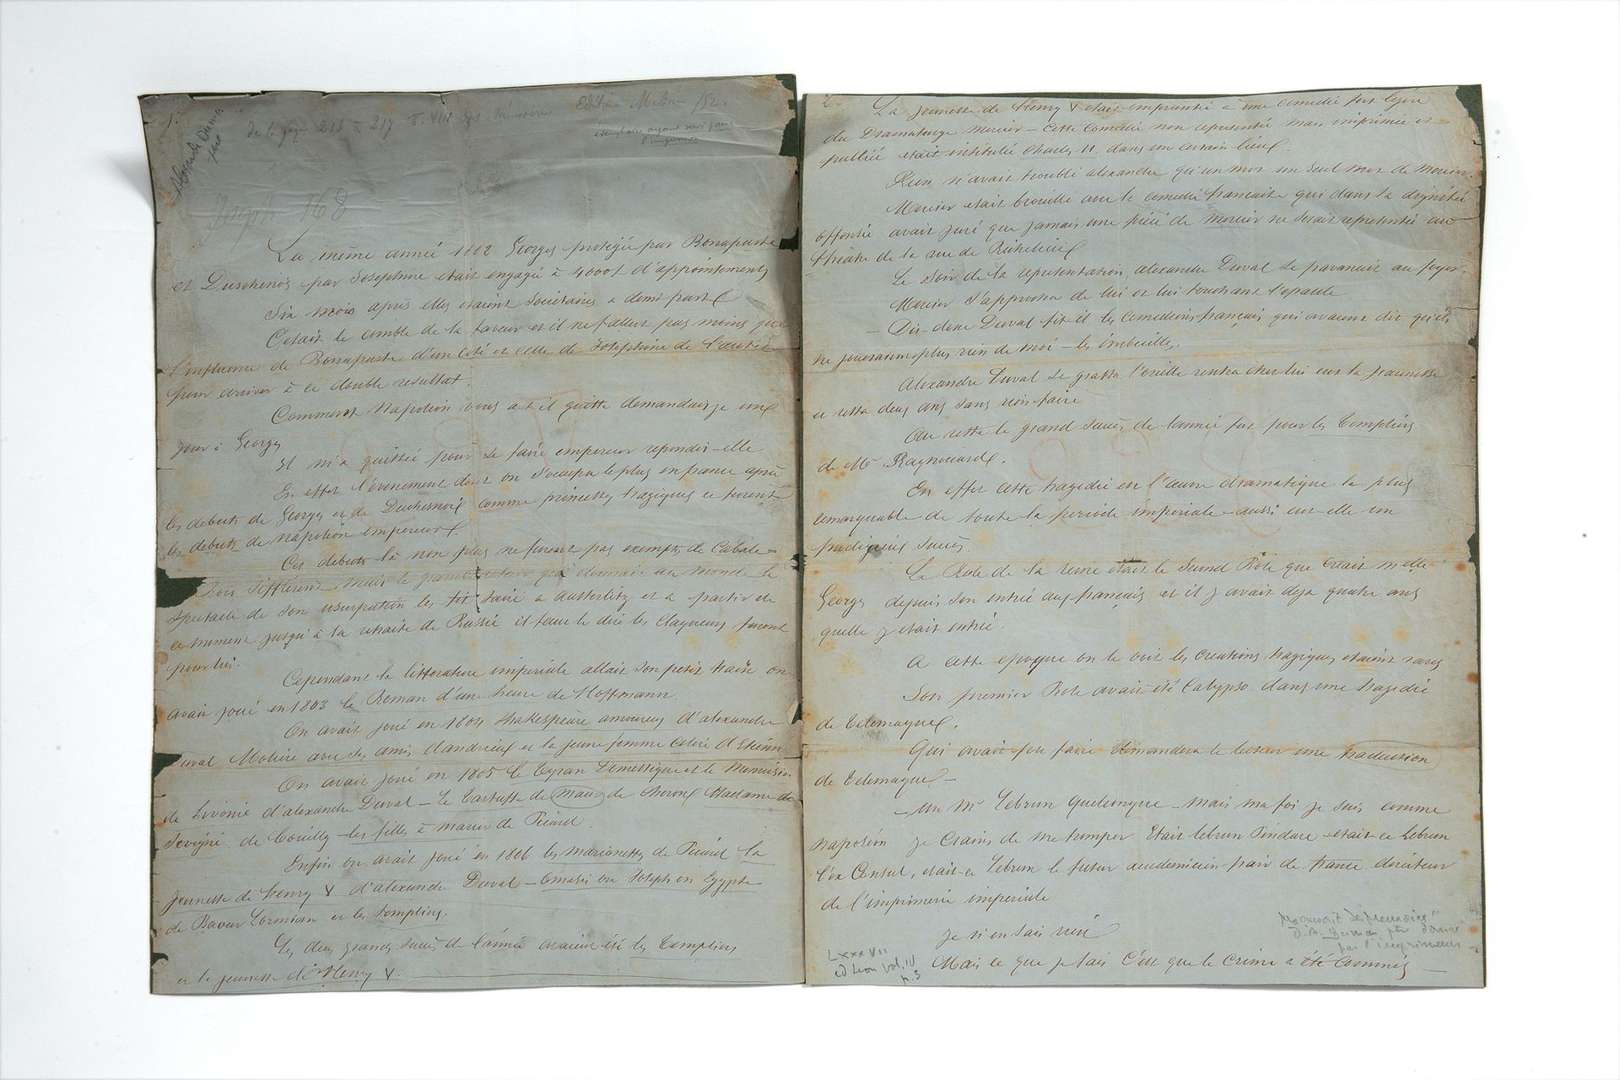 1.
Alexandre Dumas
père
de la page 215 à 217 T. VIII des Mémoires Edition Melin /52.
exemplaire ayant servi pour
l'imprimeur
Joseph 168
La même année 1802 Georges protégée par Bonaparte
et Duschenois par Josephine était engagée à 4000f d'appointements
Six mois après elles etaient Sociétaires a demi part
C'etait le comble de la faveur et il ne fallut pas moins que
l'influence de Bonaparte d'un Coté et celle de Joséphine de l'autre
pour arriver à ce double resultat.
Comment Napoléon vous a t il quitté demandais je un
jour à Georges
Il m'a quittée pour se faire empereur repondit-elle
En effet l'évenement dont on s'occupa le plus en france après
les debuts de Georges et de Duchesnois comme princesses tragiques ce furent
les debuts de Napoléon empereur
Ces debuts là non plus ne furent pas exempts de Cabale
Rois Sifflerent mais le grand acteur qui donnait au monde le
Spectacle de son usurpation les fit taire a austerlitz et a partir de
ce moment jusqu'à la retraite de Russie il faut le dire les Claqueurs furent
pour lui.
Cependant la littérature imperiale allait son petit train on
avait joué en 1803 le Roman d'une heure de Hoffmann
On avait joué en 1804 Shakespeare amoureux d'alexandre
Duval Molière avec ses amis d'andrieux et la jeune femme colère d'Etienne
On avait joué en 1805 le tyran Domestique et le Menuisier
de Livonie d'alexandre Duval – le tartuffe de mœurs de Cheron Madame de
Sevigné de bouilly – les filles à marier de Picard
Enfin on avait joué en 1806 les marionettes de Picard la
jeunesse de henry V d'alexandre Duval – Omasis ou Joseph en Egypte
de Baour Lormian et les templiers.
Les deux grands succès de l'année avaient été les Templiers
et la jeunesse de Henry V
2.
La jeunesse de Henry V etait empruntée a une comedie fort legère
du Dramaturge mercier – cette Comedie non representée mais imprimée et
publiée etait intitulée Charles II dans un certain lieu.
Rien n'avait troublé alexandre qu'un mot un seul mot de mercier
Mercier etait brouillé avec la comedie francaise qui dans sa dignité
offensée avait juré que jamais une pièce de mercier ne serait representée au
théatre de la rue de Richelieu
Le Soir de la representation alexandre Duval se pavanait au foyer.
Mercier s'approcha de lui et lui touchant l'epaule
– Dis-donc Duval fit il les Comediens français qui avaient dit qu'ils
ne joueraient plus rien de moi – les imbeciles.
Alexandre Duval se gratta l'oreille rentra chez lui eut la jaunisse
et resta deux ans sans rien faire
Au reste le grand succès de l'année fut pour les Templiers
de Mr Raynouard.
En effet cette tragedie est l'œuvre dramatique la plus
remarquable de toute la periode impériale – aussi eut-elle un
prodigieux succès
Le Role de la reine etait le second Role que creait melle
Georges depuis son entrée aux français et il y avait deja quatre ans
quelle y etait entrée.
A cette epoque on le voit les creations tragiques etaient rares
Son premier Role avait été Calypso dans une tragedie
de telemaque.
Qui avait pu faire demandera le lecteur une traduction
de telemaque –
– un Mr Lebrun quelconque – mais ma foi je suis comme
Napoléon je Crains de me tromper Etait lebrun Pindare – etait-ce lebrun
l'ex Consul, etait-ce Lebrun le futur academicien pair de france directeur
de l'imprimerie imperiale
Je n'en sais rien
Mais ce que je sais c'est que le Crime a été Commis –
LXXXVII
ed Leon vol. IV
p. 3
Manuscrit des "Memoires"
d'A. Dumas père donné
par l'imprimeur